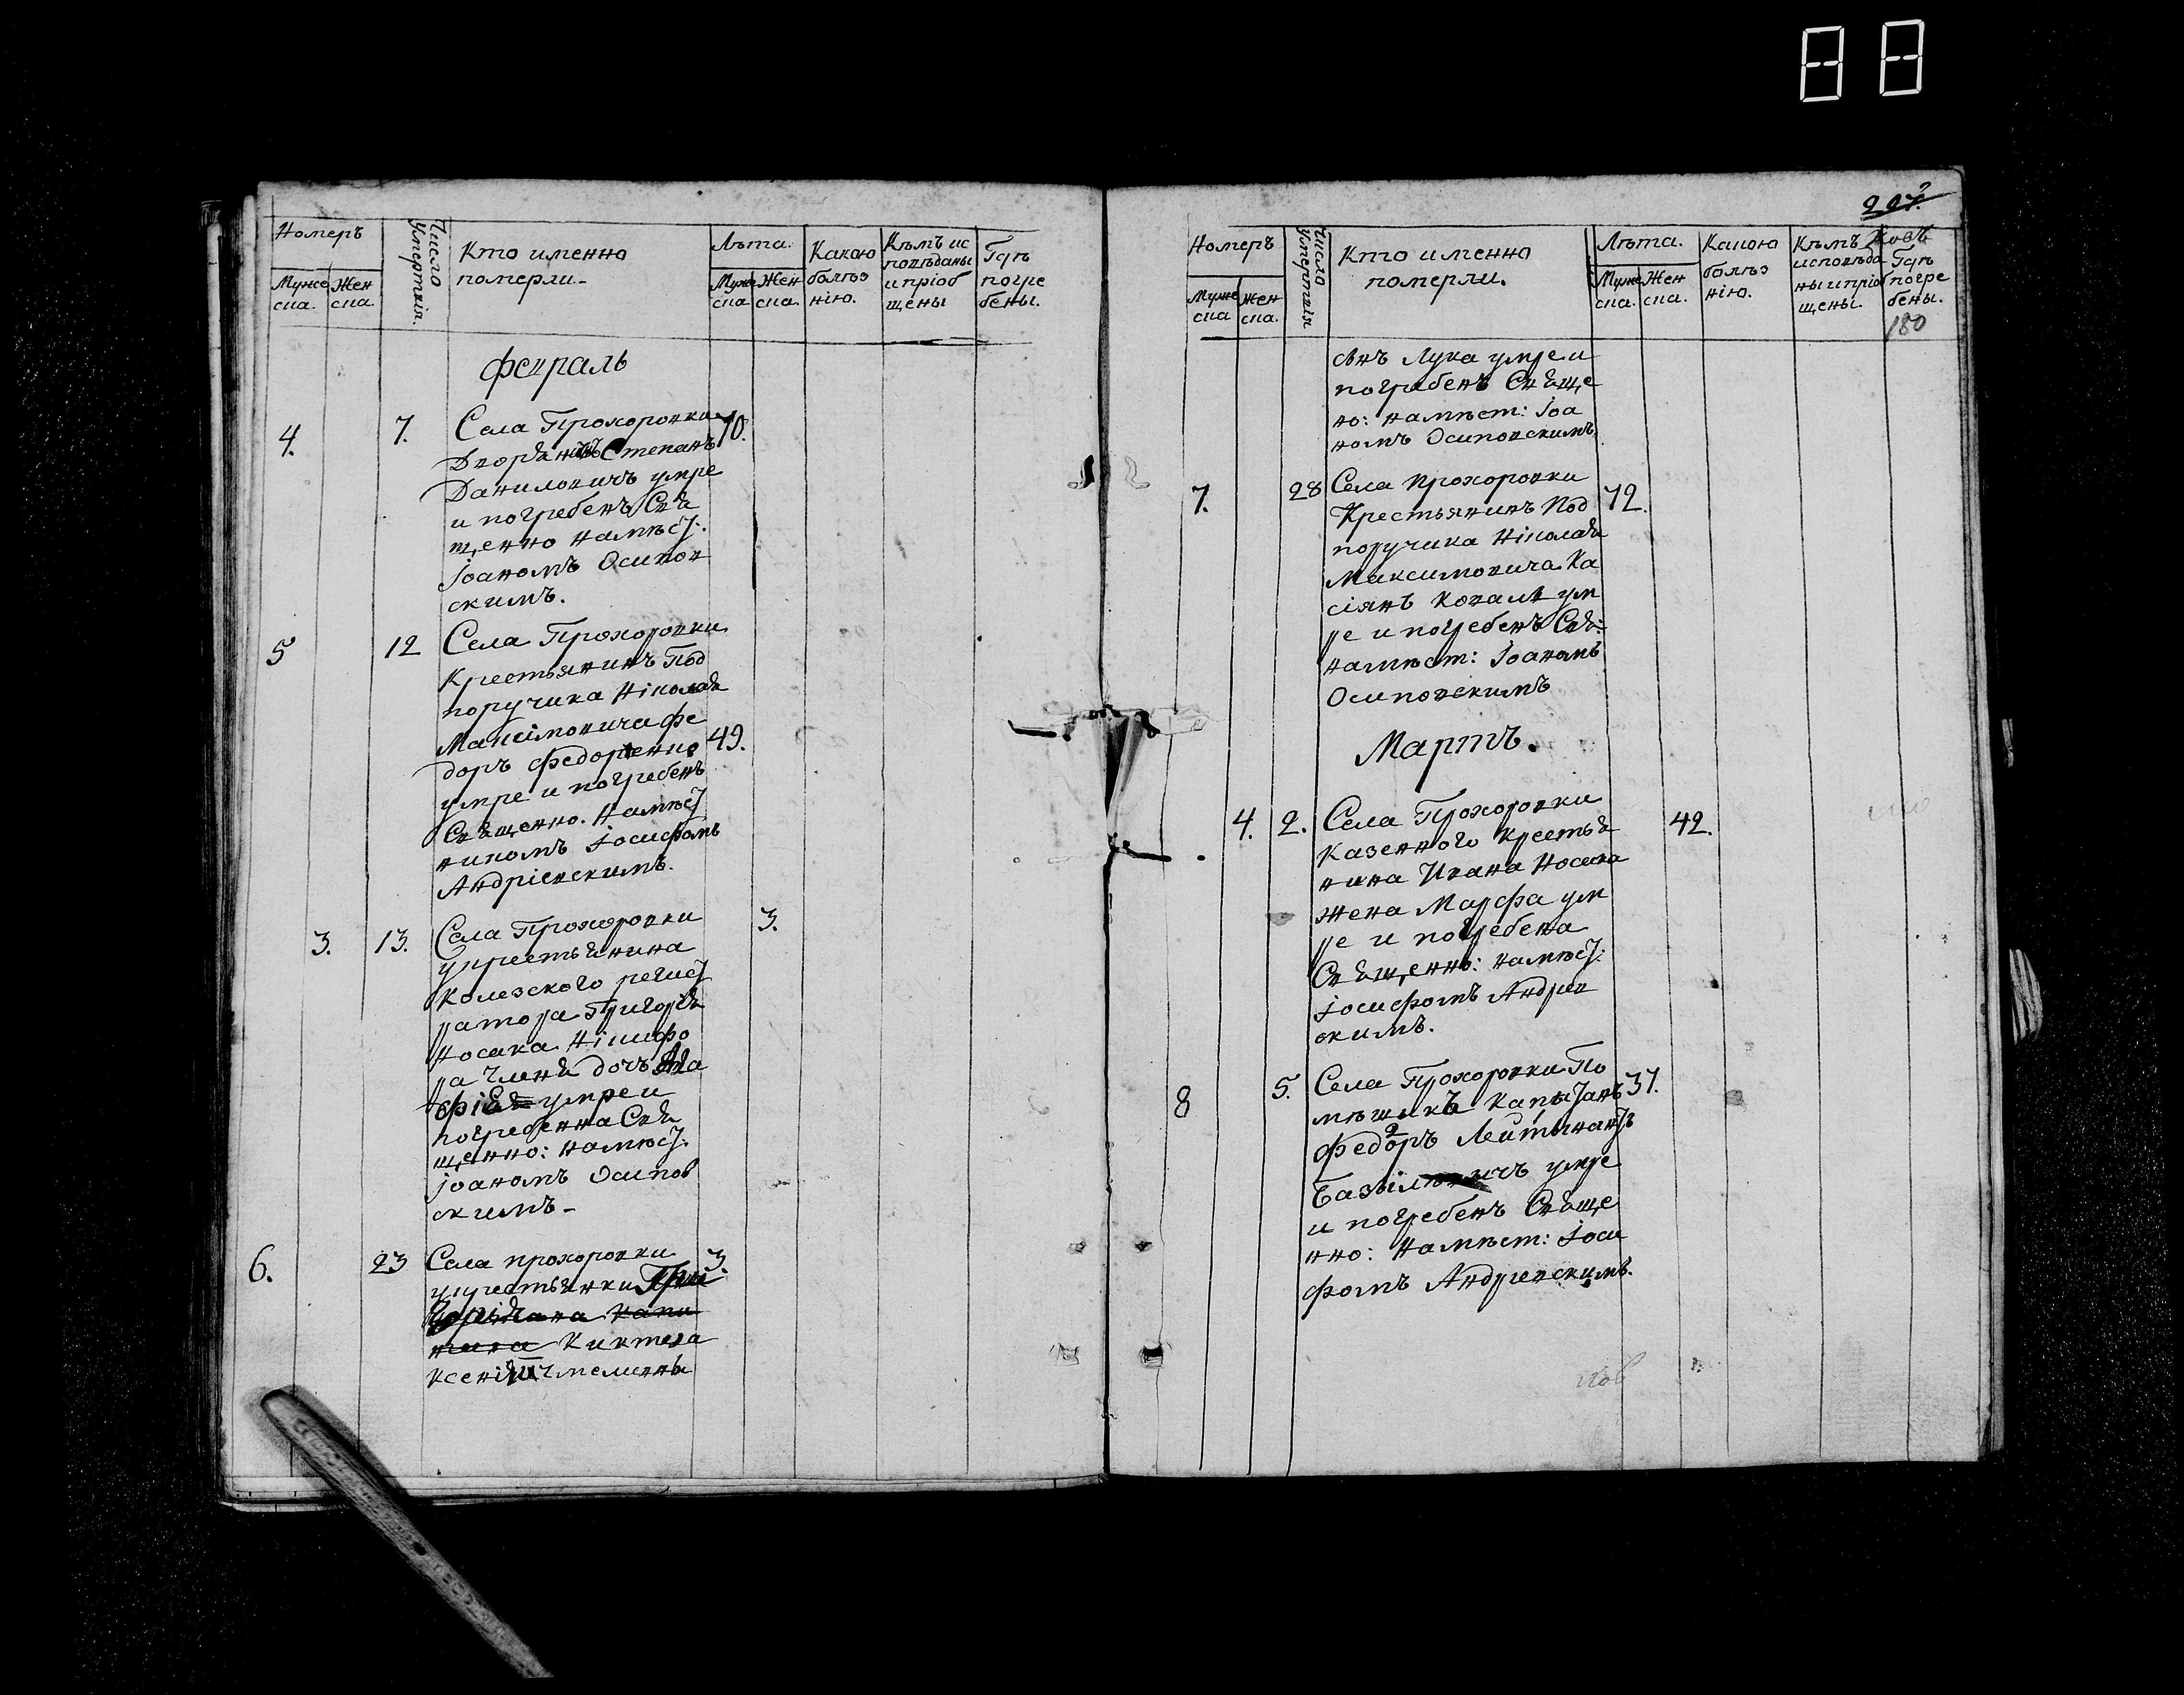 Номеръ
Муже
ска.
Жен
ска.
Число
Умертвія.
Кто именно
померли.
Лѣта.
Муже
ска
Жен
ска.
Какою
болѣз
нію.
Кѣмъ ис
повѣданы
и пріоб
щены
Гдѣ
погре
бены.
февраль
4. 7. Села Прохоровки 70.
Дворянинъ Степанъ
Даниловичъ умре
и погребенъ Свя
щенно намѣст:
Іоаномъ Осипов
скимъ.
5 12 Села Прохоровки
Крестьянинъ Под
поручика Ніколая
Максімовича фе
доръ федорченко 49.
умре и погребенъ
Священно. Намѣст
никомъ Іосифомъ
Андріевскимъ.
3. 13. Села Прохоровки 3.
у крестьянина
Колезского регист
ратора Григорія
Носака Нікифо
ра дочъ
умре и
погребенна Свя
щенно: намѣст:
Іоаномъ Осипов
скимъ.
6. 23 Села прохоровки 3.
у крестьянки
Ксенія
207.
180
Номеръ
Муже
ска
Жен
ска.
Число
Умертвія
Кто именно
померли.
Лѣта.
Муже
ска.
Жен
ска.
Какою
болѣз
нію.
Кѣмъ
исповѣда
ны и пріоб
щены.
Гдѣ
погре
бены.
сынъ Лука умре и
погребенъ Свяще
но: намѣст: Іоа
номъ Осиповскимъ.
7. 28 Села Прохоровки
Крестьянинъ Под 72.
поручика Ніколая
Максимовича Ка
сіянъ Коваль ум
ре и погребенъ Свя:
намѣст: Іоаномъ
Осиповскимъ
Мартъ.
4. 2. Села Прохоровки 42.
Казенного крестья
нина Ивана Носака
жена Марфа ум
ре и погребена
Священно: намѣст:
Іосифомъ Андрев
скимъ.
8 5. Села Прохоровки По 37.
мѣщикъ Капѣтанъ
федоръ
умре
и погребенъ Свяще
нно: Намѣст: Іоси
фомъ Андревскимъ.